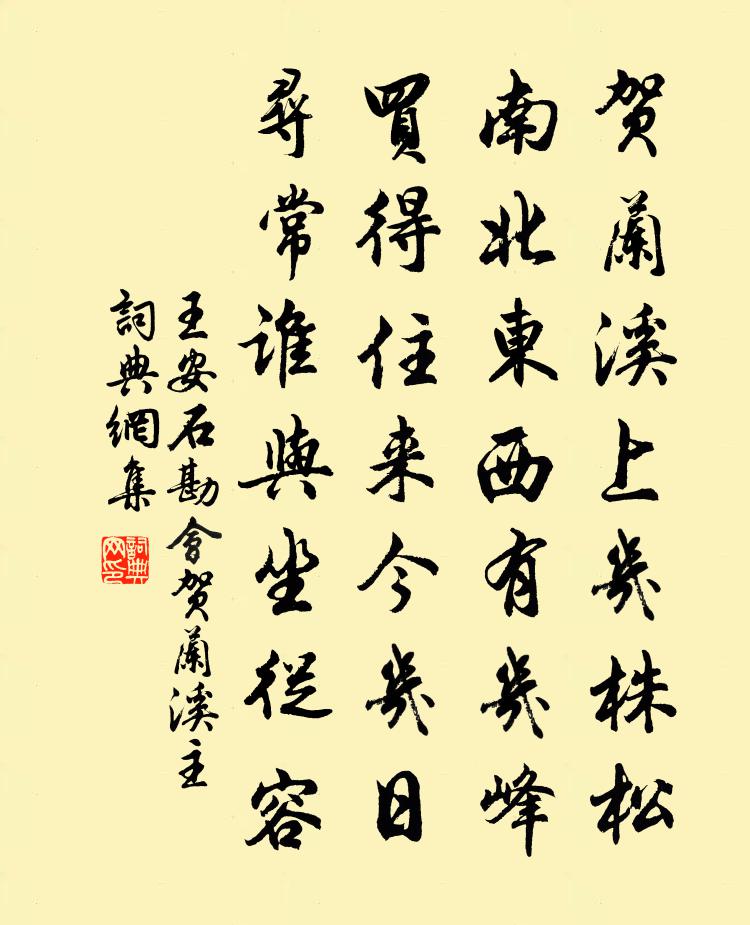 賀蘭溪上幾株松
南北東西有幾峰
買得住来今幾日
尋常誰與坐從容
王安石勘會賀蘭溪主
詞典網集
詞典
网印